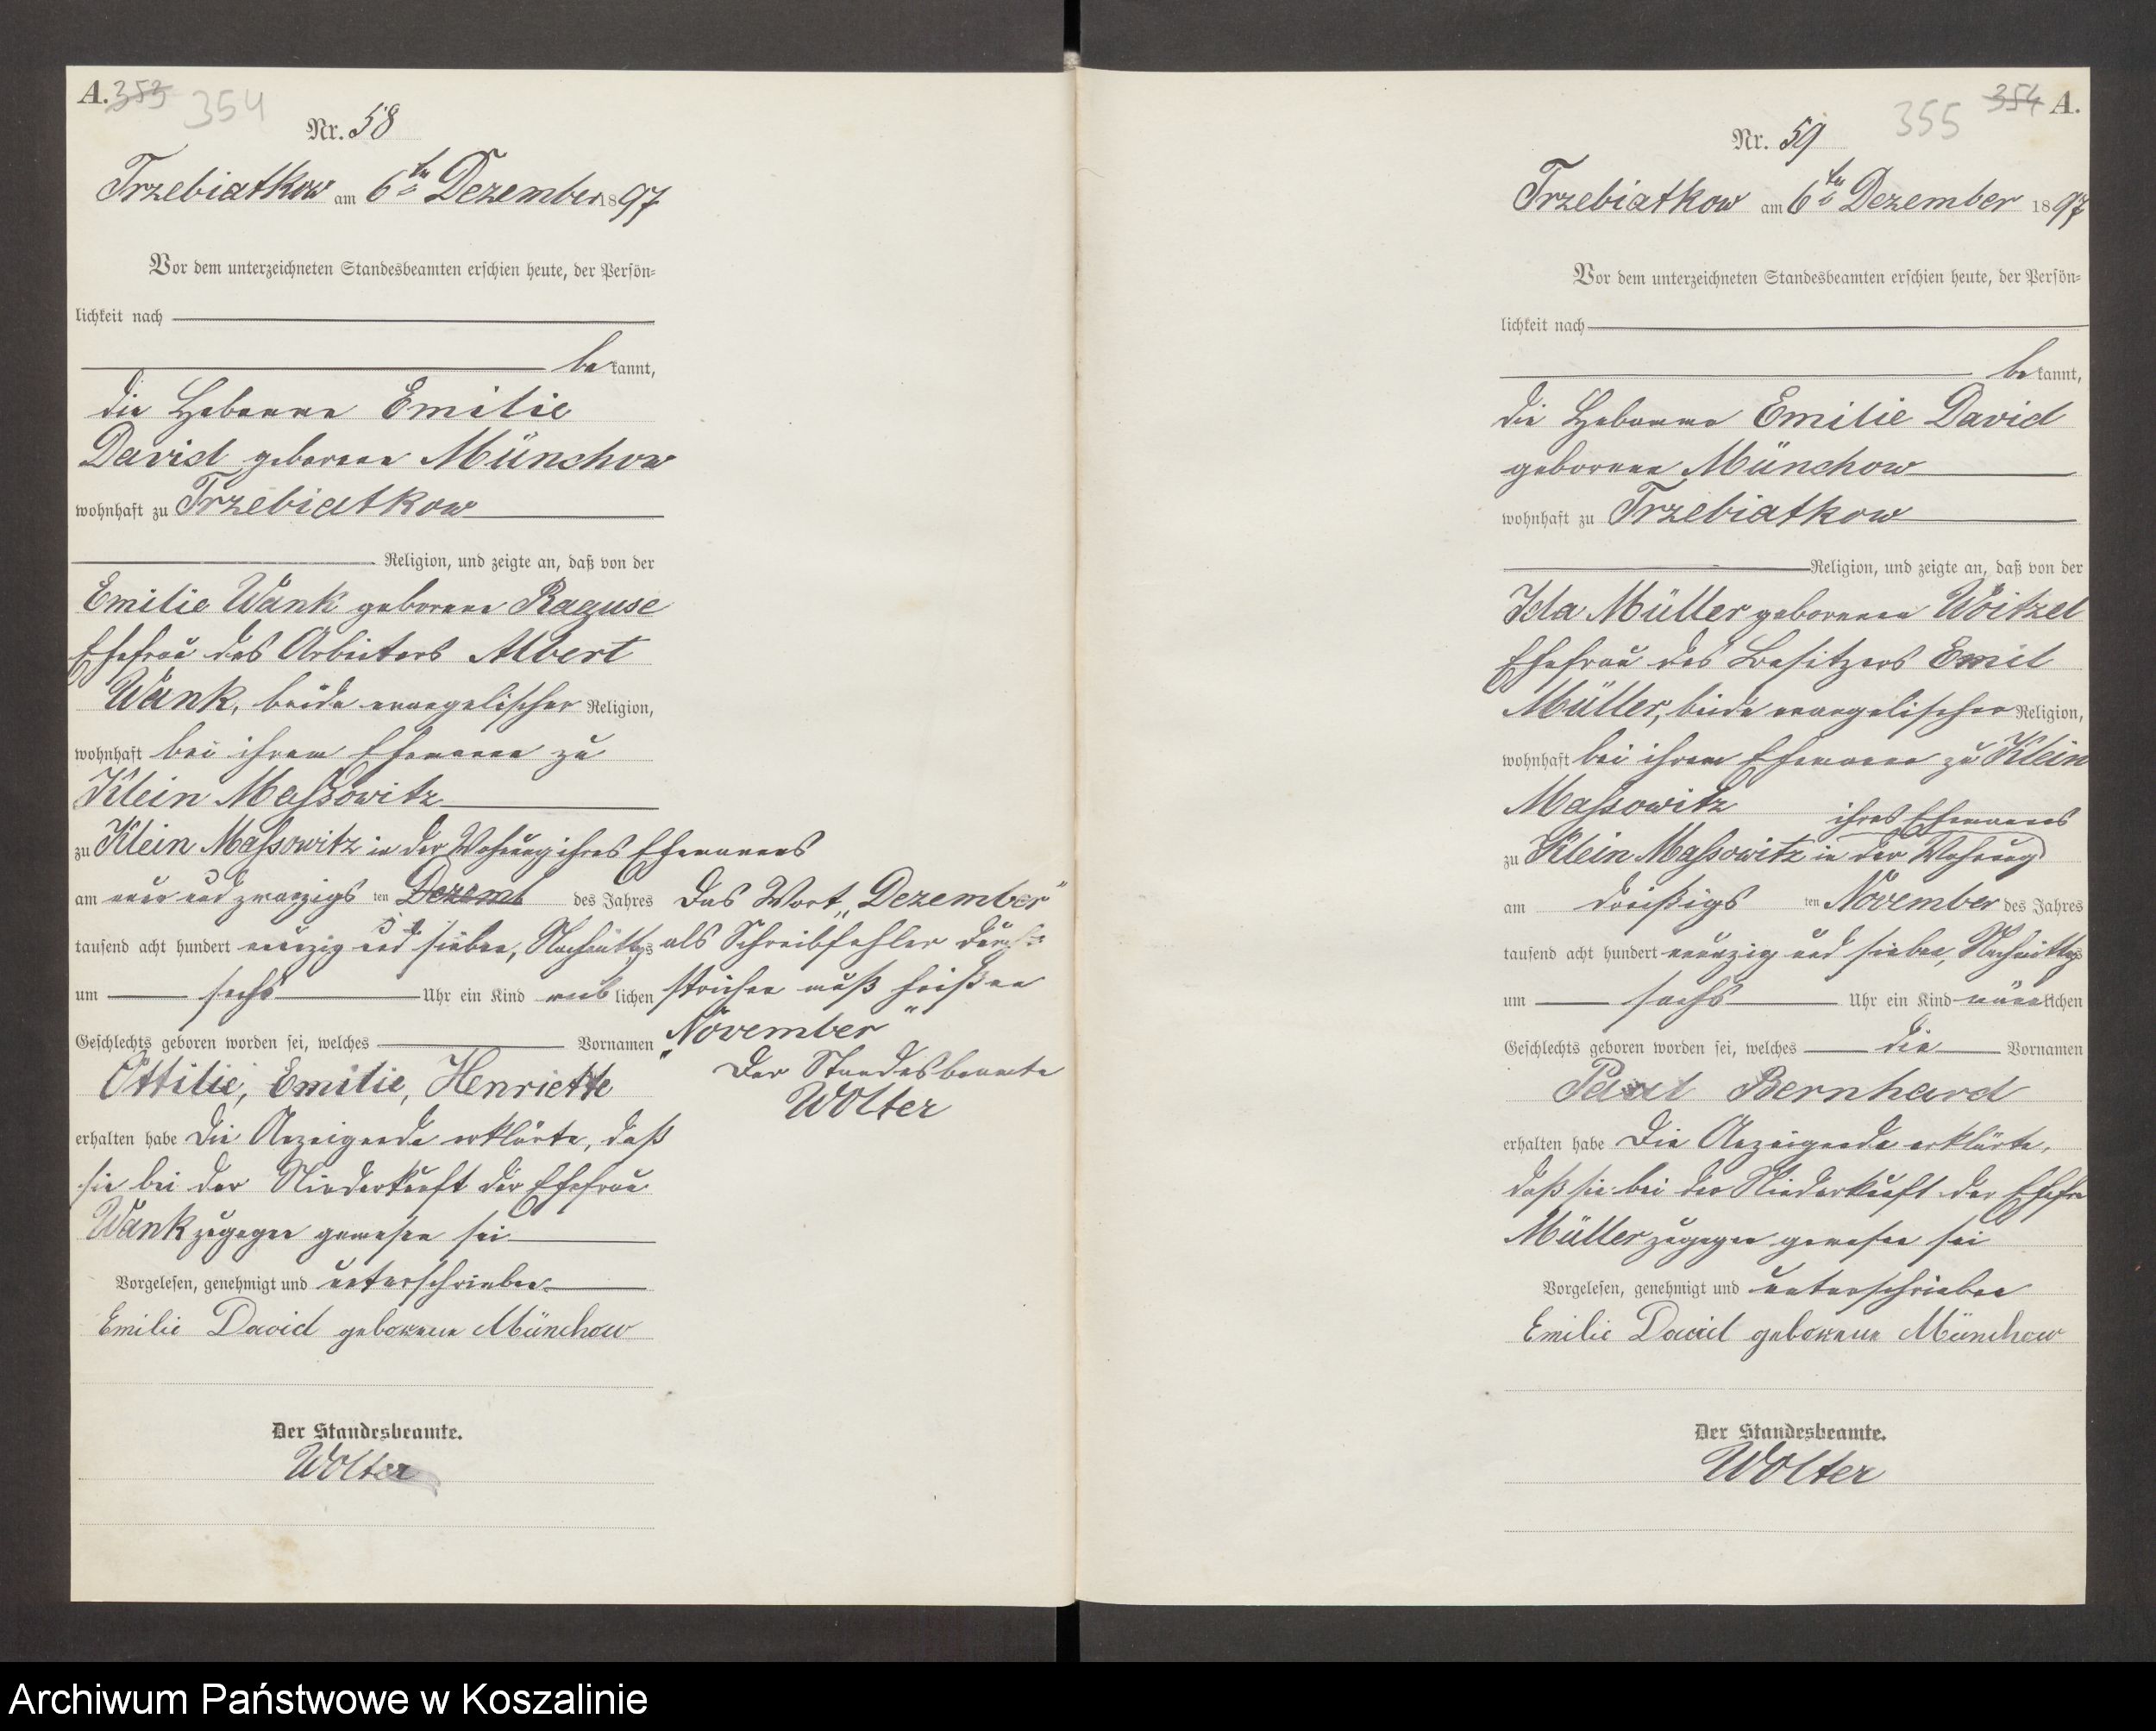 A. 353 354
Nr. 58
Trzebiatkow am 6ten Dezember 1897
Vor dem unterzeichneten Standesbeamten erschien heute, der Persön-
lichkeit nach
bekannt,
die Hebamme Emilie
David geborene Münchow
wohnhaft zu Trzebiatkow
Religion, und zeigte an, daß von der
Emilie Wank geborene Raguse
Ehefrau des Arbeiters Albert
Wank, beide evangelischer Religion,
wohnhaft bei ihrem Ehemann zu
Klein Massowitz
zu Klein Massowitz in der Wohnung ihres Ehemannes
am neun und zwanzigsten Dezemb des Jahres
tausend acht hundert neunzig und sieben, Nachmittags
um sechs Uhr ein Kind weiblichen
Geschlechts geboren worden sei, welches Vornamen
Ottilie, Emilie, Henriette
erhalten habe Die Anzeigende erklärte, daß
sie bei der Niederkunft der Ehefrau
Wank zugegen gewesen sei
Vorgelesen, genehmigt und unterschrieben
Emilie David geborene Münchow
Der Standesbeamte.
Wolter
Das Wort „Dezember"
als Schreibfehler durch-
strichen muß heißen
„November"
Der Standesbeamte
Wolter
355 354 A.
Nr. 59
Trzebiatkow am 6ten Dezember 1897
Vor dem unterzeichneten Standesbeamten erschien heute, der Persön-
lichkeit nach
bekannt,
die Hebamme Emilie David
geborene Münchow
wohnhaft zu Trzebiatkow
Religion, und zeigte an, daß von der
Ida Müller geborenen Woitzel
Ehefrau des Besitzers Emil
Müller, beide evangelischer Religion,
wohnhaft bei ihrem Ehemann zu Klein
Massowitz
ihres Ehemannes
zu Klein Massowitz in der Wohnung
am dreißigsten November des Jahres
tausend acht hundert neunzig und sieben, Nachmittags
um sechs Uhr ein Kind männlichen
Geschlechts geboren worden sei, welches die Vornamen
Paul Bernhard
erhalten habe Die Anzeigende erklärte,
daß sie bei der Niederkunft der Ehefra
Müller zugegen gewesen sei
Vorgelesen, genehmigt und unterschrieben
Emilie David geborene Münchow
Der Standesbeamte.
Wolter
Archiwum Państwowe w Koszalinie